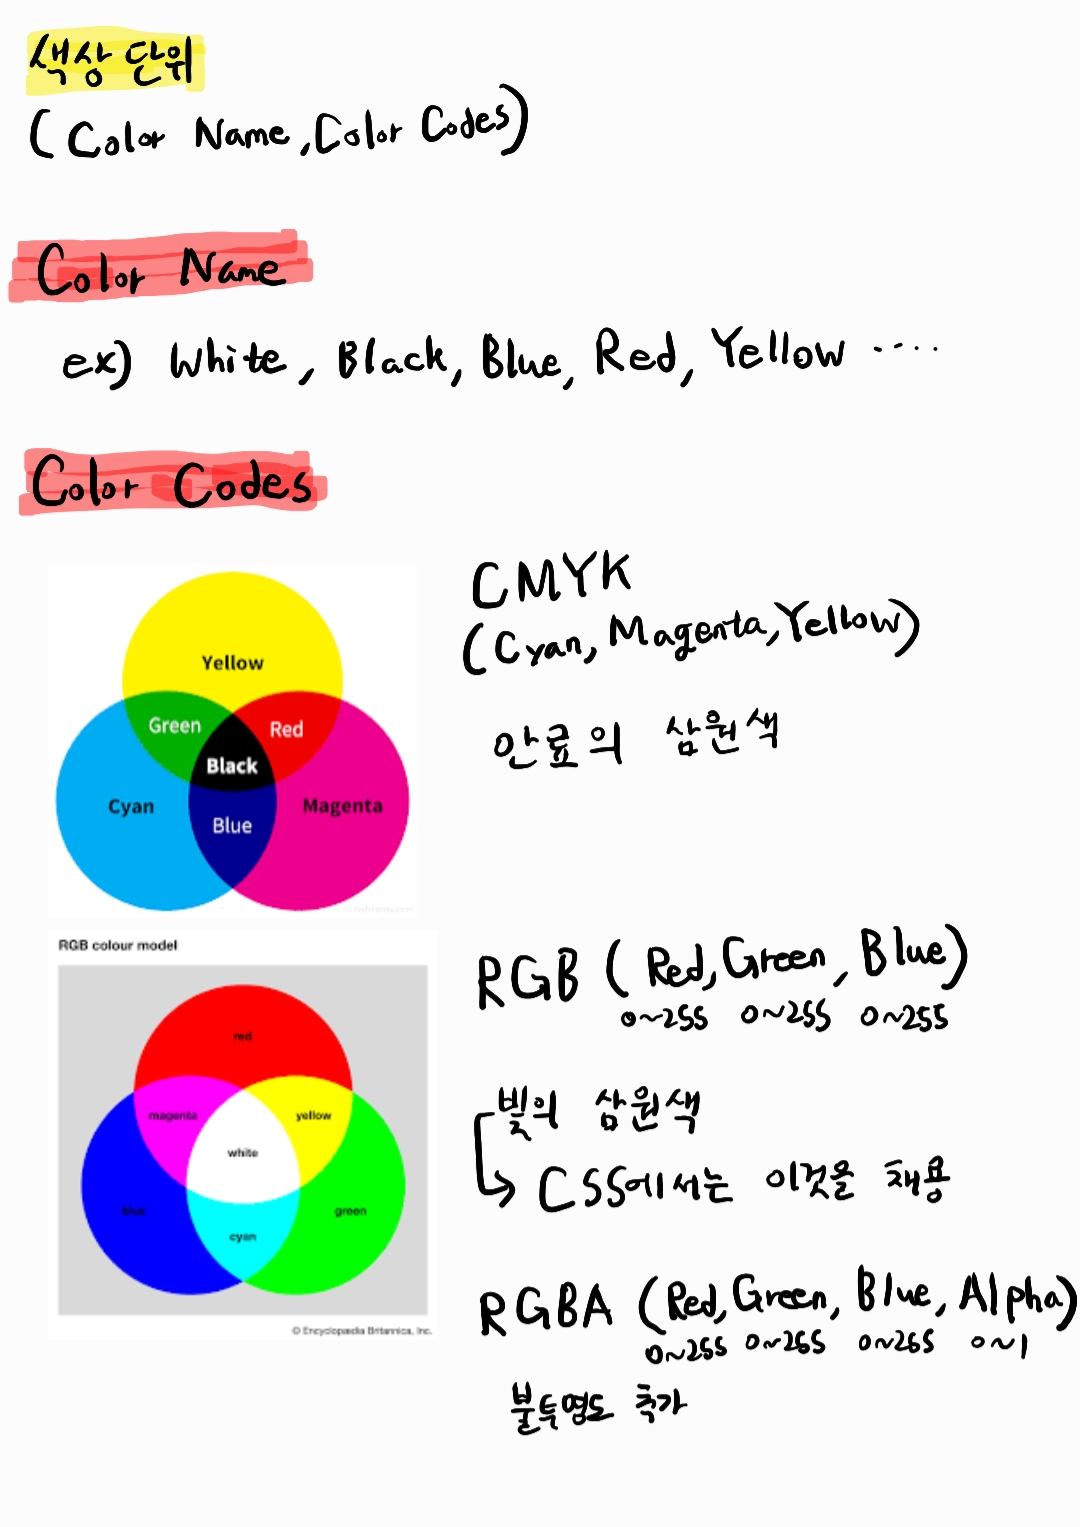 색상 단위
(Color Name, Color Codes)
Color Name
ex) White, Black, Blue, Red, Yellow ....
Color Codes
Yellow
Green
Red
Black
Cyan
Magenta
Blue
CMYK
(Cyan, Magenta, Yellow)
안료의 삼원색
RGB colour model
red
magenta
yellow
white
blue
green
cyan
© Encyclopædia Britannica, Inc.
RGB (Red, Green, Blue)
0~255 0~255 0~255
빛의 삼원색
CSS에서는 이것을 채용
RGBA (Red, Green, Blue, Alpha)
0~255 0~255 0~255 0~1
불투명도 추가